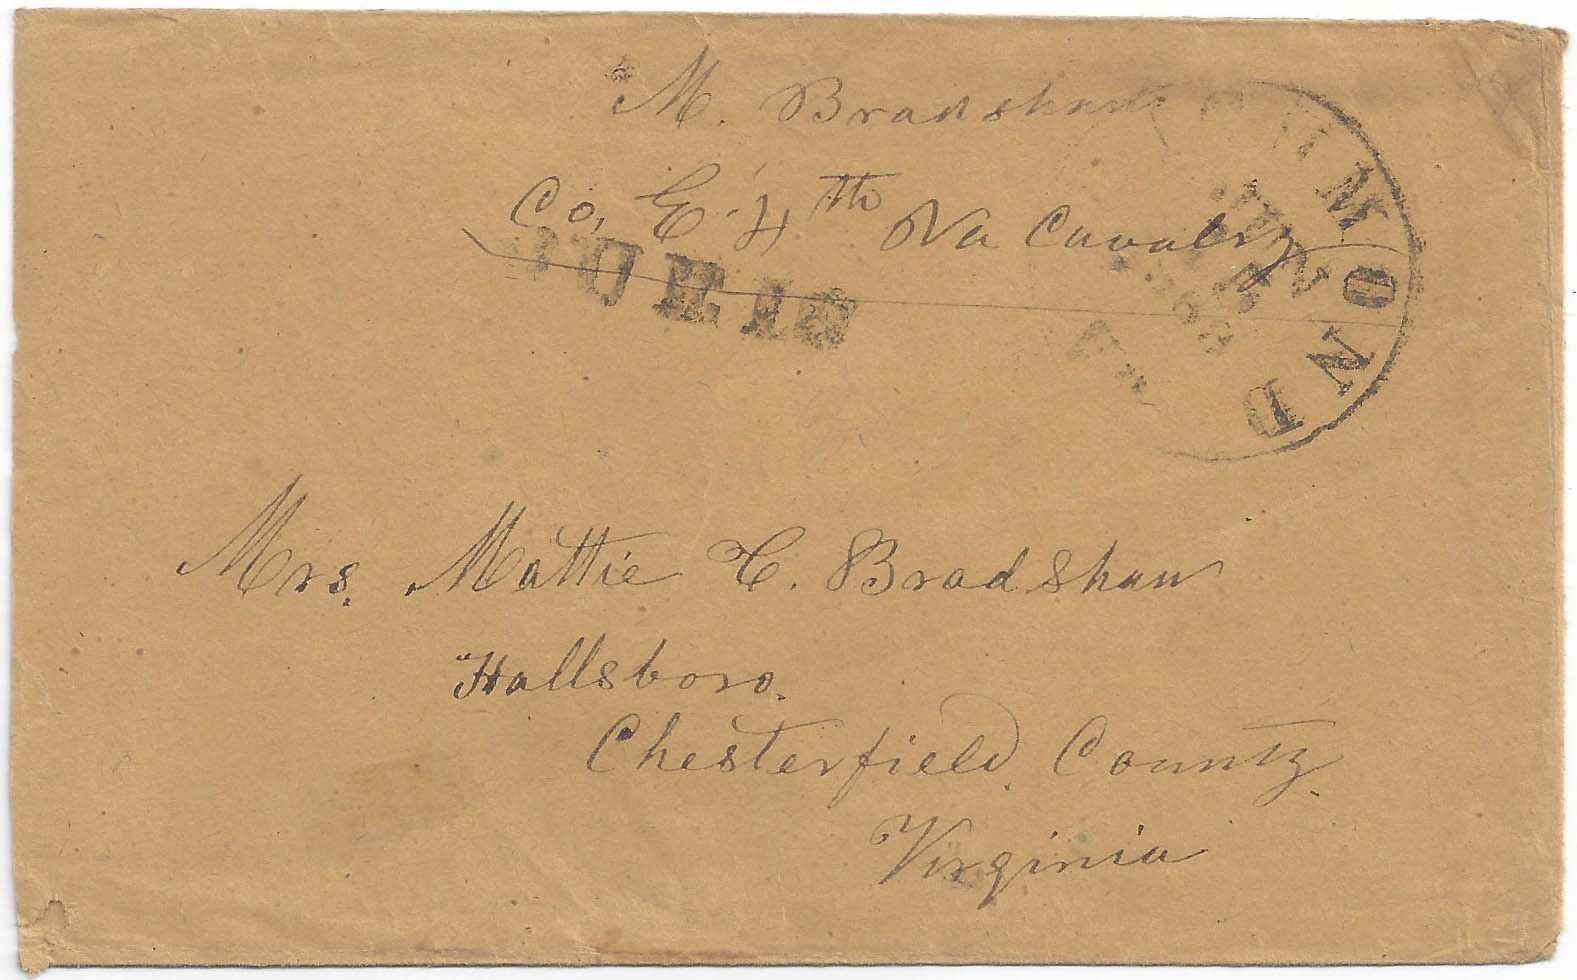 M. Bradshaw
Co, E. 4th Va Cavalry
DUE 10
RICHMOND
VA.
Mrs. Mattie C. Bradshaw
Hallsboro.
Chesterfield County.
Virginia